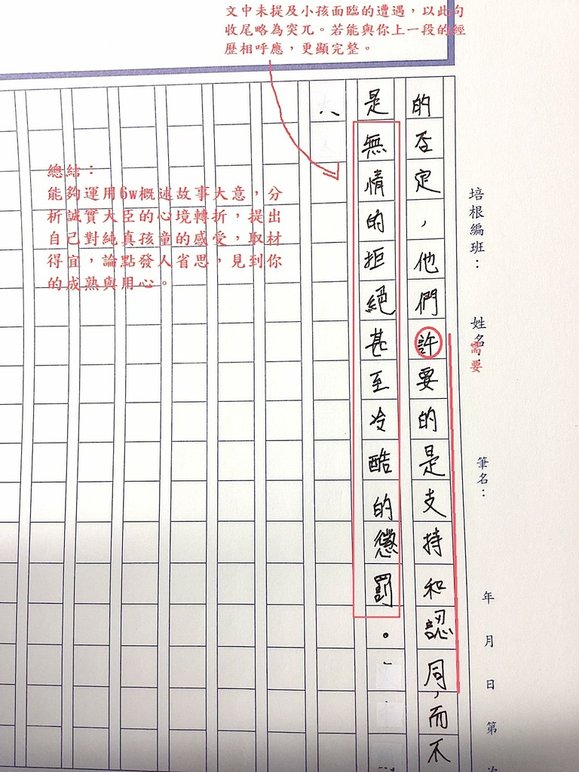 文中未提及小孩面臨的遭遇，以此句
收尾略為突兀。若能與你上一段的經
歷相呼應，更顯完整。
的否定，他們許要的是支持和認同，而不
是無情的拒絕甚至冷酷的懲罰。
需要
總結：
能夠運用6w概述故事大意，分
析誠實大臣的心境轉折，提出
自己對純真孩童的感受，取材
得宜，論點發人省思，見到你
的成熟與用心。
培根編班：
姓名
筆名：
年 月 日 第